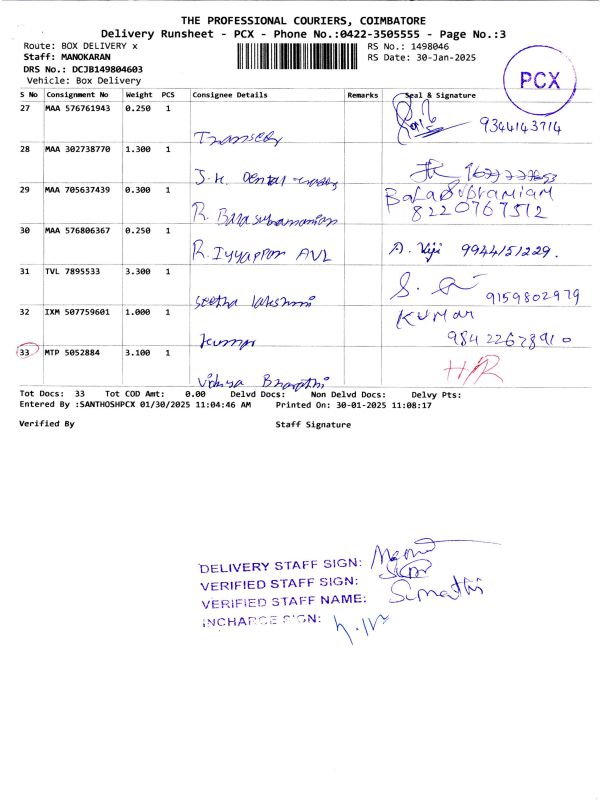 THE PROFESSIONAL COURIERS, COIMBATORE
Delivery Runsheet - PCX - Phone No.:0422-3505555 - Page No.:3
Route: BOX DELIVERY x RS No.: 1498046
Staff: MANOKARAN RS Date: 30-Jan-2025
DRS No.: DCJB149804603
Vehicle: Box Delivery
PCX
S No Consignment No Weight PCS Consignee Details Remarks Seal & Signature
27 MAA 576761943 0.250 1
9344143714
28 MAA 302738770 1.300 1
J.K. Dental
29 MAA 705637439 0.300 1 BALASUBRAMIAM
R. Balasubramanian 8220767512
30 MAA 576806367 0.250 1
R. Iyyappan AVL A. Viji 9944151229.
31 TVL 7895533 3.300 1
Seetha lakshmi 9159802979
32 IXM 507759601 1.000 1 KUMAR
Kumar 98422678910
33 MTP 5052884 3.100 1
Vidhya Bharathi H/R
Tot Docs: 33 Tot COD Amt: 0.00 Delvd Docs: Non Delvd Docs: Delvy Pts:
Entered By :SANTHOSHPCX 01/30/2025 11:04:46 AM Printed On: 30-01-2025 11:08:17
Verified By Staff Signature
DELIVERY STAFF SIGN:
VERIFIED STAFF SIGN:
VERIFIED STAFF NAME: Sumathi
INCHARGE SIGN: